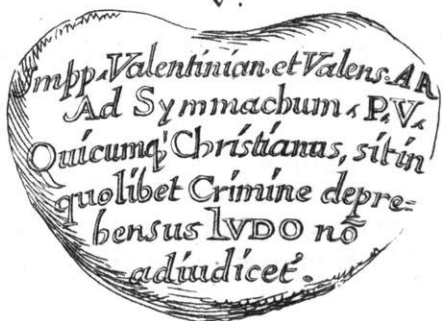 V.
Impp. Valentinian. et Valens. AA
Ad Symmachum. P. V.
Quicumq' Christianus, sit in
quolibet Crimine depre-
hensus lVDO nō
adiudicet'.